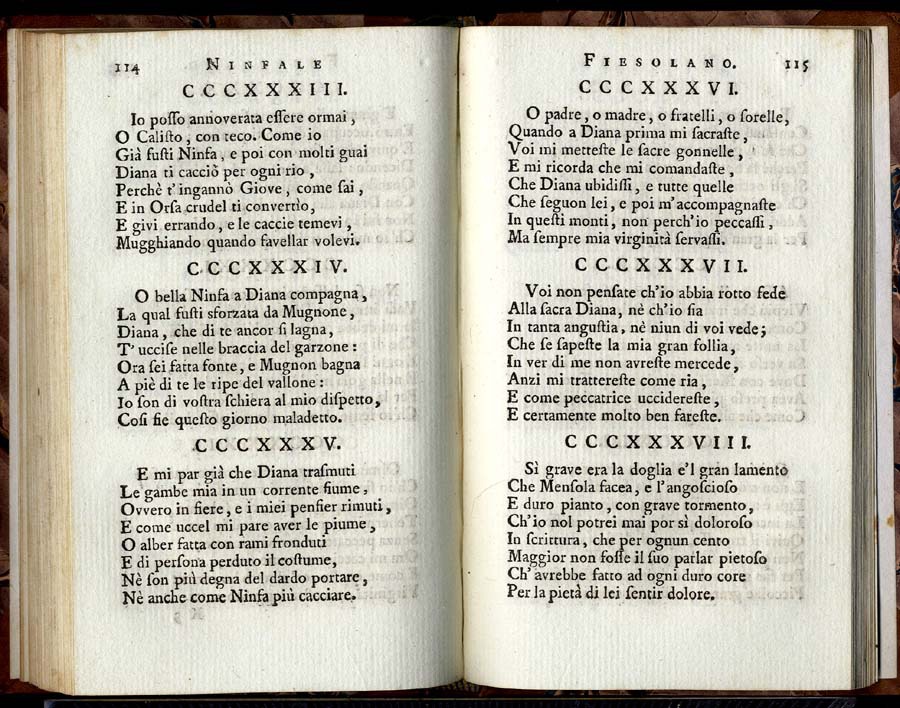 114 NINFALE
CCCXXXIII.
Io poſſo annoverata eſſere ormai,
O Caliſto, con teco. Come io
Già fuſti Ninfa, e poi con molti guai
Diana ti cacciò per ogni rio,
Perchè t'ingannò Giove, come ſai,
E in Orſa crudel ti convertìo,
E givi errando, e le caccie temevi,
Mugghiando quando favellar volevi.
CCCXXXIV.
O bella Ninfa a Diana compagna,
La qual fuſti sforzata da Mugnone,
Diana, che di te ancor ſi lagna,
T'ucciſe nelle braccia del garzone:
Ora ſei fatta fonte, e Mugnon bagna
A piè di te le ripe del vallone:
Io ſon di voſtra ſchiera al mio diſpetto,
Coſi fie queſto giorno maladetto.
CCCXXXV.
E mi par già che Diana traſmuti
Le gambe mia in un corrente fiume,
Ovvero in fiere, e i miei penſier rimuti,
E come uccel mi pare aver le piume,
O alber fatta con rami fronduti
E di perſona perduto il coſtume,
Nè ſon più degna del dardo portare,
Nè anche come Ninfa più cacciare.
FIESOLANO. 115
CCCXXXVI.
O padre, o madre, o fratelli, o ſorelle,
Quando a Diana prima mi ſacraſte,
Voi mi metteſte le ſacre gonnelle,
E mi ricorda che mi comandaſte,
Che Diana ubidiſſi, e tutte quelle
Che ſeguon lei, e poi m'accompagnaſte
In queſti monti, non perch'io peccaſſi,
Ma ſempre mia virginità ſervaſſi.
CCCXXXVII.
Voi non penſate ch'io abbia rotto fede
Alla ſacra Diana, nè ch'io ſia
In tanta anguſtia, nè niun di voi vede;
Che ſe ſapeſte la mia gran follia,
In ver di me non avreſte mercede,
Anzi mi trattereſte come ria,
E come peccatrice uccidereſte,
E certamente molto ben fareſte.
CCCXXXVIII.
Sì grave era la doglia e'l gran lamento
Che Menſola facea, e l'angoſcioſo
E duro pianto, con grave tormento,
Ch'io nol potrei mai por sì doloroſo
In ſcrittura, che per ognun cento
Maggior non foſſe il ſuo parlar pietoſo
Ch'avrebbe fatto ad ogni duro core
Per la pietà di lei ſentir dolore.